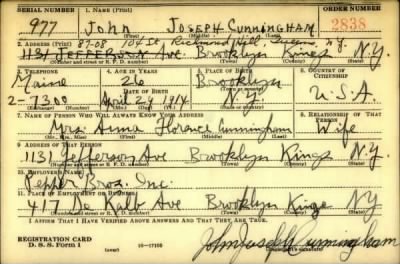 SERIAL NUMBER 1. NAME (Print) ORDER NUMBER
977 John JOSEPH CUNNINGHAM 2838
(First) (Middle) (Last)
2. ADDRESS (Print) 87-08 104 St Richmond Hill, Queens, N.Y.
1131 JEFFERSON Ave. Brooklyn Kings N.Y.
(Number and street or R. F. D. number) (Town) (County) (State)
3. TELEPHONE 4. AGE IN YEARS 5. PLACE OF BIRTH 6. COUNTRY OF CITIZENSHIP
26 Brooklyn
DATE OF BIRTH (Town or county)
2-7300 April 29 1914 N.Y. U.S.A.
(Exchange) (Number) (Mo.) (Day) (Yr.) (State or country)
7. NAME OF PERSON WHO WILL ALWAYS KNOW YOUR ADDRESS 8. RELATIONSHIP OF THAT PERSON
Mrs. Anna Florence Cunningham Wife
(Mr., Mrs., Miss) (First) (Middle) (Last)
9. ADDRESS OF THAT PERSON
1131 Jefferson Ave Brooklyn Kings N.Y.
(Number and street or R. F. D. number) (Town) (County) (State)
10. EMPLOYER'S NAME
Bros. Inc.
11. PLACE OF EMPLOYMENT OR BUSINESS
417 De Kalb Ave Brooklyn Kings NY
(Number and street or R. F. D. number) (Town) (County) (State)
I AFFIRM THAT I HAVE VERIFIED ABOVE ANSWERS AND THAT THEY ARE TRUE.
REGISTRATION CARD
D. S. S. Form 1 16-17105 John Joseph Cunningham